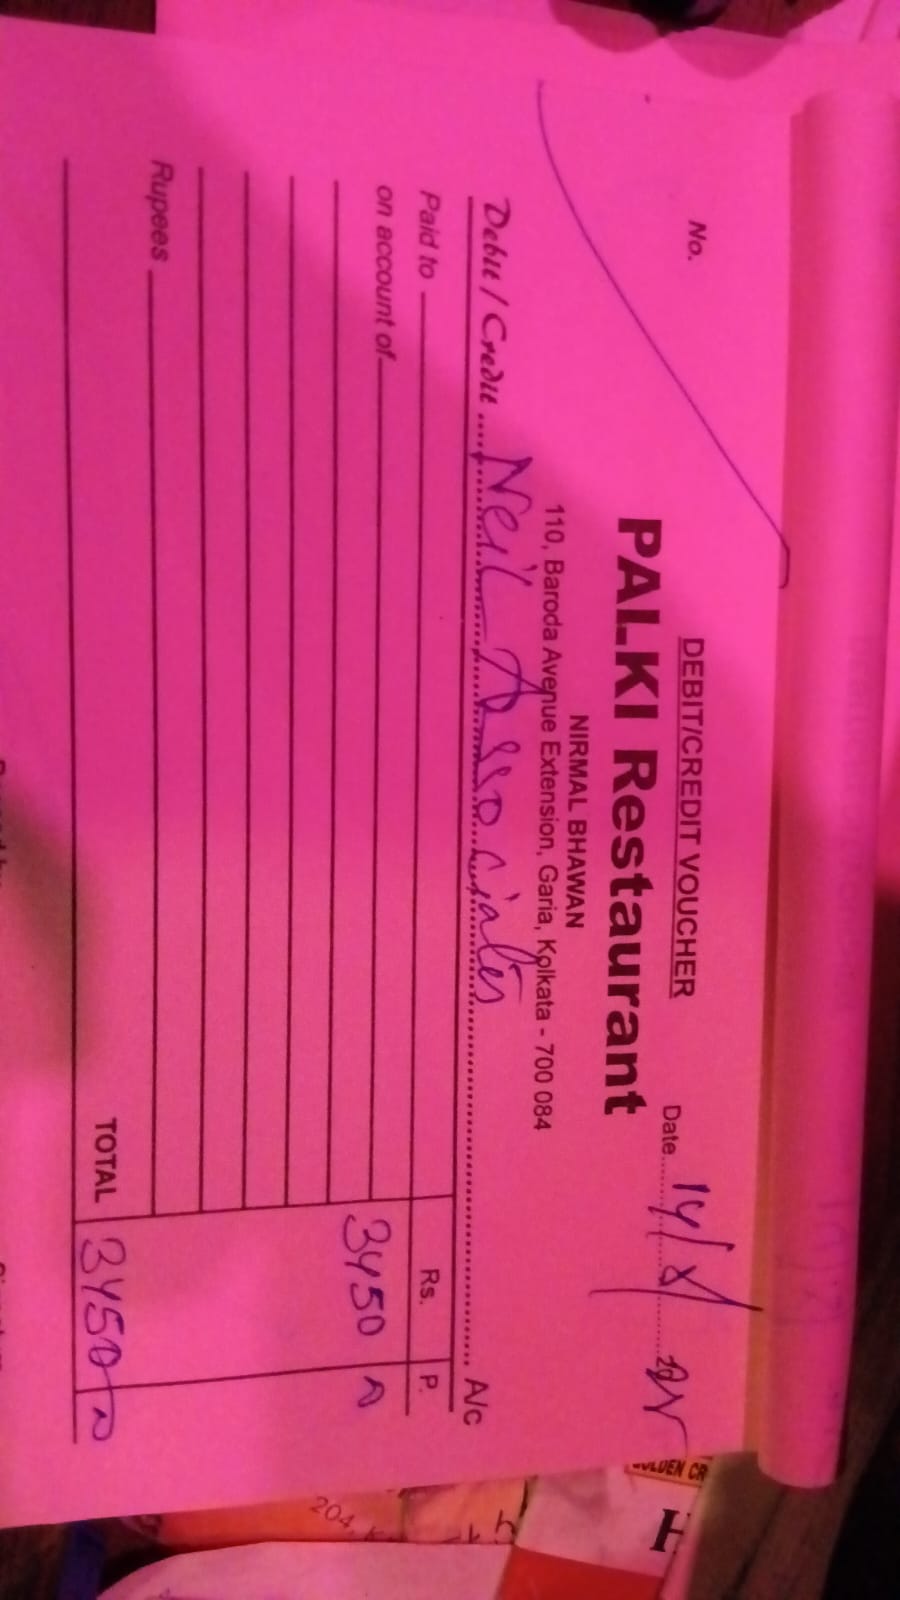 DEBIT/CREDIT VOUCHER
No.
Date
PALKI Restaurant
NIRMAL BHAWAN
110, Baroda Avenue Extension, Garia, Kolkata - 700 084
Debit / Credit Neil Associates A/c
Paid to Rs. P.
on account of 3450
Rupees
TOTAL 3450
GOLDEN CR
H
204,